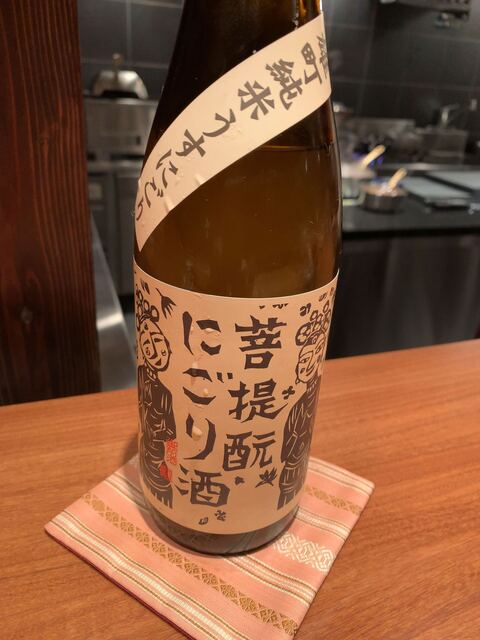 雄町純米うすにごり
菩提酛
にごり酒